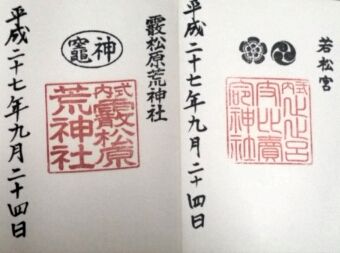 若松宮
平成二十七年九月二十四日
霰松原荒神社
竈神
式内霰松原
荒神社
平成二十七年九月二十四日